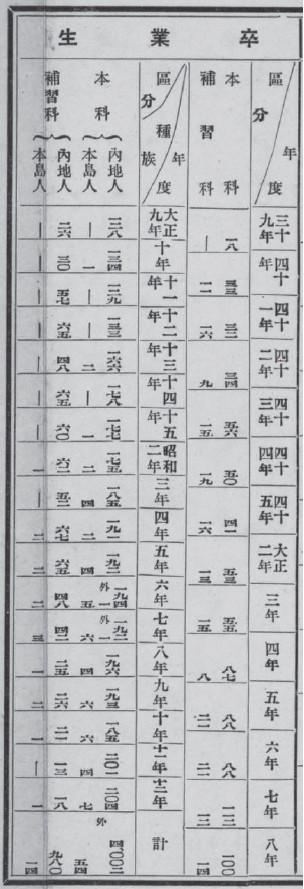 卒業生
區分 年度 三十九年 四十年 四十一年 四十二年 四十三年 四十四年 四十五年 大正二年 三年 四年 五年 六年 七年 八年
本科 一八 三三 三三 三四 五六 五〇 四二 五三 五五 八七 八八 八八 一〇〇
補習科 — 一六 九 一五 一九 一六 一三 一五 八 二一 二一 一三 一四
區分 種族 年度 大正九年 十年 十一年 十二年 十三年 十四年 十五年 昭和二年 三年 四年 五年 六年 七年 八年 九年 十年 十一年 十二年 計
本科 內地人 一三八 一三四 一二九 一三三 一六六 一七八 一七七 一七五 一八五 一九二 一九三 外一 一九四 外一 一九二 一九六 一九三 一八五 二〇一 二〇四 外
本島人 — 一 — — 二 — 一 二 四 二 四 五 六 四 六 六 四 七 五四
補習科 內地人 二六 三〇 五七 六五 四八 六五 六〇 六二 五二 六七 六五 四八 四二 二五 二六 二一 一三 一八 九八〇
本島人 — — — — — — — 一 — 二 二 二 三 一 二 一 — 一 一四